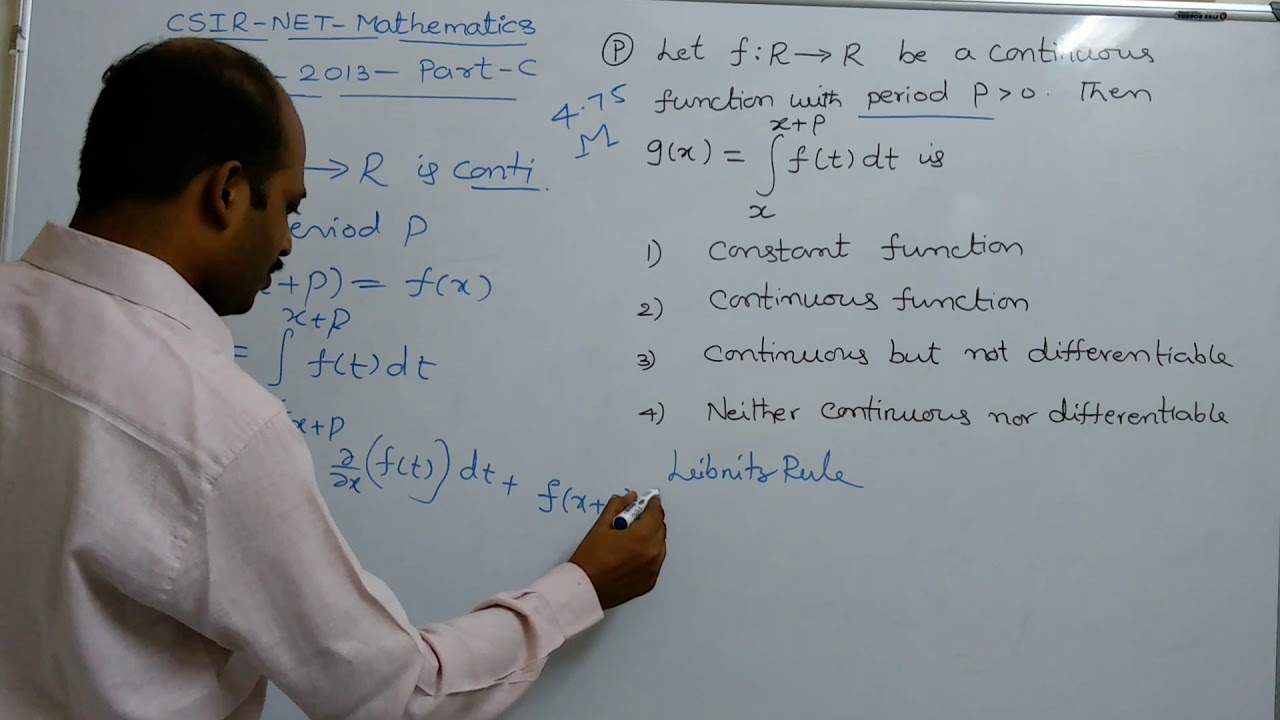 CSIR-NET-Mathematics
- 2013 - Part-C
→ R is conti.
eriod P
+P) = f(x)
x+P
= ∫ f(t) dt
x+P
∂/∂x (f(t)) dt + f(x+
4.75
M
(P) Let f: R → R be a continuous
function with period P>0. Then
x+P
g(x) = ∫ f(t) dt is
x
1) Constant function
2) Continuous function
3) Continuous but not differentiable
4) Neither continuous nor differentiable
Leibnitz Rule